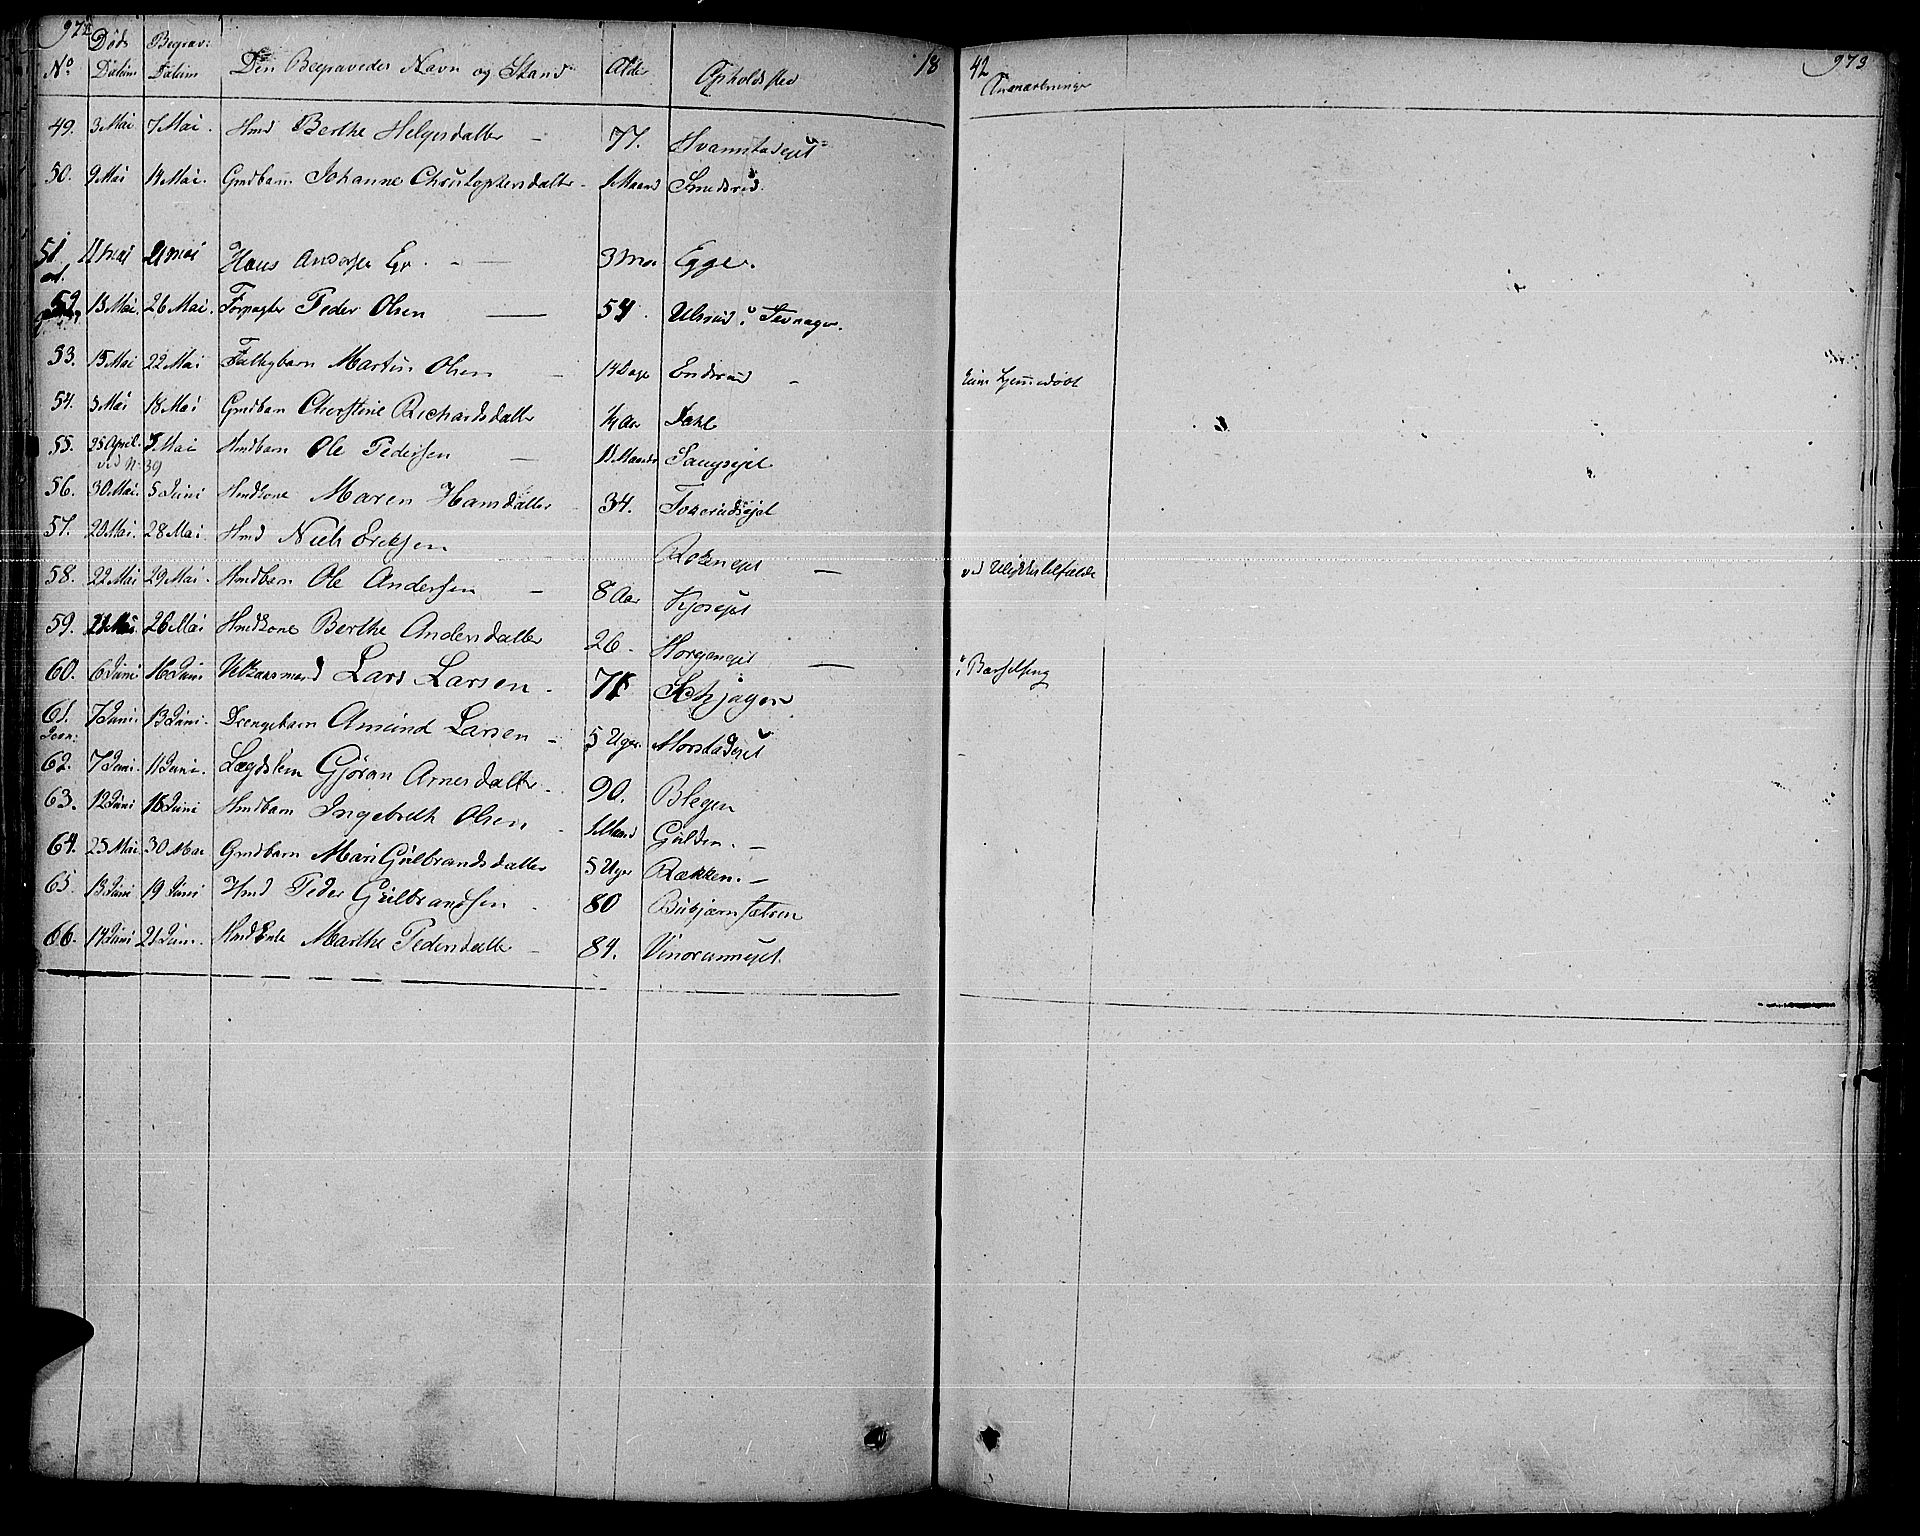 972 18 42 973
No Døds Datum Begrav: Datum Den Begravedes Navn og Stand Alder Opholdsted Anmærkninger
49. 3 Mai 7 Mai. Hmd Berthe Helgesdatter 77.
50. 9 Mai 14 Mai. Gmdbarn Johanne Christophersdatter 1 Maaned Smedsrud.
51. 11 mai 21 mai Hans Eg. 3 Egge.
52 13 Mai. 26 Mai. Forpagter Peder Olsen 54. i Tevnager.
53. 15 Mai 22 Mai Martin Olsen 14 Dage Endrud hjemmedøbt
54. 5 Mai 18 Mai Gmdbarn Christine Richardsdatter ½ Aar Dahl
55. 25 April. 7 Mai Hmdbarn Ole Pedersen Maaneder
ved N: 39
56. 30 Mai. 5 Juni Hmdkone Maren Hansdatter 34.
57. 20 Mai. 28 Mai. Hmd Niels Eriksen Rokeneyet
58. 22 Mai 29 Mai. Hmdbarn Ole Andersen 8 Aar Kjoseyet ved Ulykkestilfælde
59. 21 Mai 26 Mai Hmdkone Berthe Andersdatter 26. Horgeneyet
60. 6 Juni 16 Juni Lars Larsen 71 i Barselseng
61. 7 Juni. 13 Juni. Drengebarn Amund Larsen 5 Uger. Morstadeyet
62. 7 Juni. 11 Juni. Lægdslem Gjøran Arnesdatter. 90. Blegen
63. 12 Juni 18 Juni Hmdbarn Ingebreth Olsen 1 Maaned Gulden.
64. 25 Mai 30 Mai Gmdbarn Mari Gulbrandsdatter 5 Uger Rækken.
65. 13 Juni 19 Juni Hmd Peder Gulbrandsen 80
66. 14 Juni 21 Juni. Hmd Enke Marthe Pedersdatter 84. Vinoreneyet.